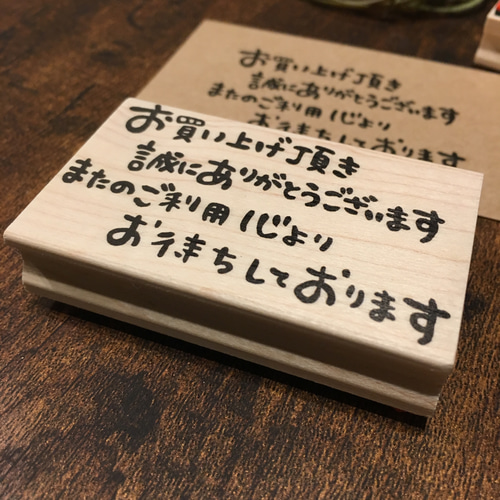 お買い上げ頂き
誠にありがとうございます
またのご利用心より
お待ちしております
お買い上げ頂き
誠にありがとうございます
またのご利用心より
お待ちしております